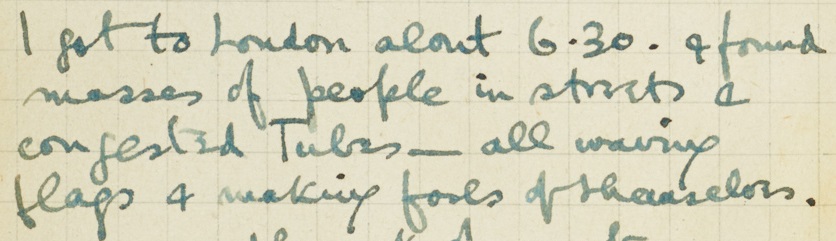 I got to London about 6.30. & found
masses of people in streets &
congested Tubes — all waving
flags & making fools of themselves.